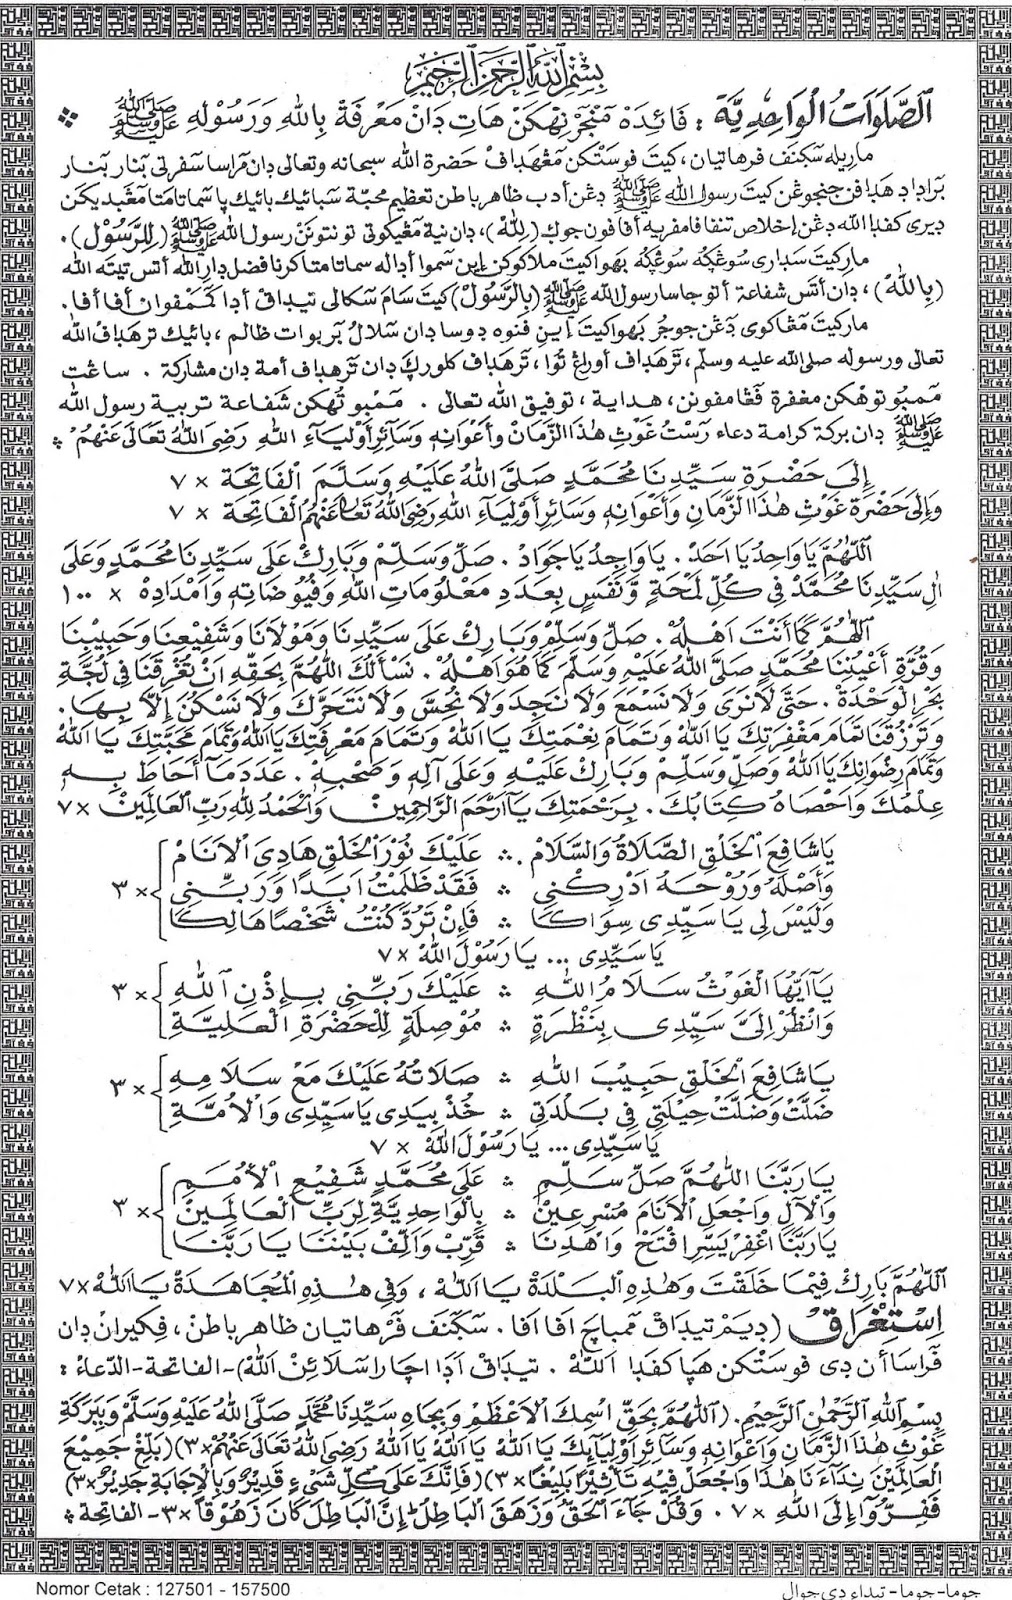 بِسْمِ اللهِ الرَّحْمٰنِ الرَّحِيْمِ
اَلصَّلَوَاتُ الْوَاحِدِيَّةُ : فَائِدَهْ مَنْجَرْنِهْكَنْ هَاتِ دَانْ مَعْرِفَةْ بِاللهِ وَرَسُوْلِهِ ﷺ
ماريله سكنف فرهاتيان ، كيت فوستكن مڠهداف حضرة الله سبحانه وتعالى دان مراسا سفرتي بنار بنار
برادا د هدافن جنجوڠن كيت رسول الله ﷺ دڠن أدب ظاهر باطن تعظيم محبة سبائيك بائيك پا سماتا متا مڠبديكن
ديري كفدا الله دڠن إخلاص تنفا فامريه أفا فون جوك (لِلّٰهْ) ، دان نية مڠيكوتي تونتونن رسول الله ﷺ (لِلرَّسُوْل) .
ماركيت سداري سوڠكه سوڠكه بهوا كيت ملاكوكن إين سموا أداله سماتا متا كرنا فضل دار الله أتس تيته الله
(بِاللهْ) ، دان أتس شفاعة أتو جاسا رسول الله ﷺ (بِالرَّسُوْل) كيت سام سكالي تيداق أدا كمفوان أفا أفا .
ماركيت مڠاكوي دڠن جوجر بهوا كيت إين فنوه دوسا دان سلالو بربوات ظالم ، بائيك ترهداف الله
تعالى ورسوله صلى الله عليه وسلم ، ترهداف أورڠ توا ، ترهداف كلورك دان ترهداف أمة دان مشاركة . ساڠت
ممبوتوهكن مغفرة فڠامفونن ، هداية ، توفيق الله تعالى . ممبوتهكن شفاعة تربية رسول الله
ﷺ دان بركة كرامة دعاء رست غَوْثِ هٰذَا الزَّمَانِ وَأَعْوَانِهِ وَسَائِرِ أَوْلِيَآءِ اللهِ رَضِيَ اللهُ تَعَالَى عَنْهُمْ
إِلَى حَضْرَةِ سَيِّدِنَا مُحَمَّدٍ صَلَّى اللهُ عَلَيْهِ وَسَلَّمَ الْفَاتِحَة × ٧
وَإِلَى حَضْرَةِ غَوْثِ هٰذَا الزَّمَانِ وَأَعْوَانِهِ وَسَائِرِ أَوْلِيَآءِ اللهِ رَضِيَ اللهُ تَعَالَى عَنْهُمُ الْفَاتِحَة × ٧
اَللّٰهُمَّ يَا وَاحِدُ يَا اَحَدْ . يَا وَاجِدُ يَا جَوَادْ . صَلِّ وَسَلِّمْ وَبَارِكْ عَلَى سَيِّدِنَا مُحَمَّدٍ وَعَلَى
اٰلِ سَيِّدِنَا مُحَمَّدْ فِى كُلِّ لَمْحَةٍ وَنَفَسٍ بِعَدَدِ مَعْلُومَاتِ اللهِ وَفُيُوضَاتِهِ وَاَمْدَادِهْ × ١٠٠
اَللّٰهُمَّ كَمَا أَنْتَ اَهْلُهْ . صَلِّ وَسَلِّمْ وَبَارِكْ عَلَى سَيِّدِنَا وَمَوْلَانَا وَشَفِيْعِنَا وَحَبِيْبِنَا
وَقُرَّةِ أَعْيُنِنَا مُحَمَّدٍ صَلَّى اللهُ عَلَيْهِ وَسَلَّمَ كَمَا هُوَ اَهْلُهْ . نَسْأَلُكَ اللّٰهُمَّ بِحَقِّهِ اَنْ تُغْرِقَنَا فِى لُجَّةِ
بَحْرِ الْوَحْدَةْ . حَتَّى لَا نَرَى وَلَا نَسْمَعَ وَلَا نَجِدَ وَلَا نُحِسَّ وَلَا نَتَحَرَّكَ وَلَا نَسْكُنَ إِلَّا بِهَا .
وَتَرْزُقَنَا تَمَامَ مَغْفِرَتِكَ يَا اَللهُ وَتَمَامَ نِعْمَتِكَ يَا اَللهُ وَتَمَامَ مَعْرِفَتِكَ يَا اَللهُ وَتَمَامَ مَحَبَّتِكَ يَا اَللهُ
وَتَمَامَ رِضْوَانِكَ يَا اَللهُ وَصَلِّ وَسَلِّمْ وَبَارِكْ عَلَيْهِ وَعَلَى آلِهِ وَصَحْبِهْ . عَدَدَ مَا أَحَاطَ بِهِ
عِلْمُكَ وَاَحْصَاهُ كِتَابُكَ . بِرَحْمَتِكَ يَآ أَرْحَمَ الرَّاحِمِيْنَ وَالْحَمْدُ لِلّٰهِ رَبِّ الْعَالَمِيْنَ × ٧
يَا شَافِعَ الْخَلْقِ الصَّلَاةُ وَالسَّلَامْ . ❖ عَلَيْكَ نُوْرَ الْخَلْقِ هَادِيَ الْاَنَامْ
وَأَصْلَهُ وَرُوْحَهُ اَدْرِكْنِي ❖ فَقَدْ ظَلَمْتُ اَبَدًا وَرَبِّنِي × ٣
وَلَيْسَ لِي يَا سَيِّدِي سِوَاكَا ❖ فَاِنْ تَرُدَّ كُنْتُ شَخْصًا هَالِكَا
يَا سَيِّدِي ... يَا رَسُوْلَ اللهْ × ٧
يَآ اَيُّهَا الْغَوْثُ سَلَامُ اللهِ ❖ عَلَيْكَ رَبِّنِي بِإِذْنِ اللهِ × ٣
وَانْظُرْ اِلَيَّ سَيِّدِي بِنَظْرَةٍ ❖ مُوْصِلَةٍ لِلْحَضْرَةِ الْعَلِيَّةِ
يَا شَافِعَ الْخَلْقِ حَبِيْبَ اللهِ ❖ صَلَاتُهُ عَلَيْكَ مَعْ سَلَامِهِ × ٣
ضَلَّتْ وَضَلَّتْ حِيْلَتِي فِي بَلْدَتِي ❖ خُذْ بِيَدِي يَا سَيِّدِي وَالْاُمَّةِ
يَا سَيِّدِي ... يَا رَسُوْلَ اللهْ × ٧
يَا رَبَّنَا اللّٰهُمَّ صَلِّ سَلِّمِ ❖ عَلَى مُحَمَّدٍ شَفِيْعِ الْاُمَمِ
وَالْآلِ وَاجْعَلِ الْاَنَامَ مُسْرِعِيْنْ ❖ بِالْوَاحِدِيَّةِ لِرَبِّ الْعَالَمِيْنْ × ٣
يَا رَبَّنَا اغْفِرْ يَسِّرِ افْتَحْ وَاهْدِنَا ❖ قَرِّبْ وَأَلِّفْ بَيْنَنَا يَا رَبَّنَا
اَللّٰهُمَّ بَارِكْ فِيْمَا خَلَقْتَ وَهٰذِهِ الْبَلْدَةْ يَا اَللهُ ، وَفِي هٰذِهِ الْمُجَاهَدَةْ يَا اَللهْ × ٧
اِسْتِغْرَاقْ (ديم تيداق ممباچ افا افا . سكنف فرهاتيان ظاهر باطن ، فيكيران دان
فراسأن دي فوستكن هپا كفدا الله . تيداق ادا اچارا سلائن الله) - الفاتحة - الدعاء :
بِسْمِ اللهِ الرَّحْمٰنِ الرَّحِيْمِ . (اَللّٰهُمَّ بِحَقِّ اسْمِكَ الْاَعْظَمِ وَبِجَاهِ سَيِّدِنَا مُحَمَّدٍ صَلَّى اللهُ عَلَيْهِ وَسَلَّمَ وَبِبَرَكَةِ
غَوْثِ هٰذَا الزَّمَانِ وَاَعْوَانِهِ وَسَائِرِ اَوْلِيَآئِكَ يَا اَللهُ يَا اَللهُ يَا اَللهُ رَضِيَ اللهُ تَعَالَى عَنْهُمْ × ٣) (بَلِّغْ جَمِيْعَ
الْعَالَمِيْنَ نِدَآءَنَا هٰذَا وَاجْعَلْ فِيْهِ تَأْثِيْرًا بَلِيْغًا × ٣) (فَاِنَّكَ عَلَى كُلِّ شَيْءٍ قَدِيْرٌ وَبِالْاِجَابَةِ جَدِيْرٌ × ٣)
فَفِرُّوْا اِلَى اللهِ × ٧ . وَقُلْ جَآءَ الْحَقُّ وَزَهَقَ الْبَاطِلُ إِنَّ الْبَاطِلَ كَانَ زَهُوْقًا × ٣ - الفاتحة
Nomor Cetak : 127501 - 157500
جوما-جوما - تيداء دي جوال